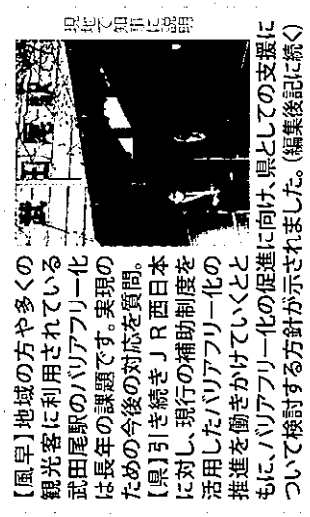 武田尾駅
現地で知事に説明
【風早】地域の方や多くの
観光客に利用されている
武田尾駅のバリアフリー化
は長年の課題です。実現の
ための今後の対応を質問。
【県】引き続きＪＲ西日本
に対し、現行の補助制度を
活用したバリアフリー化の
推進を働きかけていくとと
もに、バリアフリー化の促進に向け、県としての支援に
ついて検討する方針が示されました。(編集後記に続く)